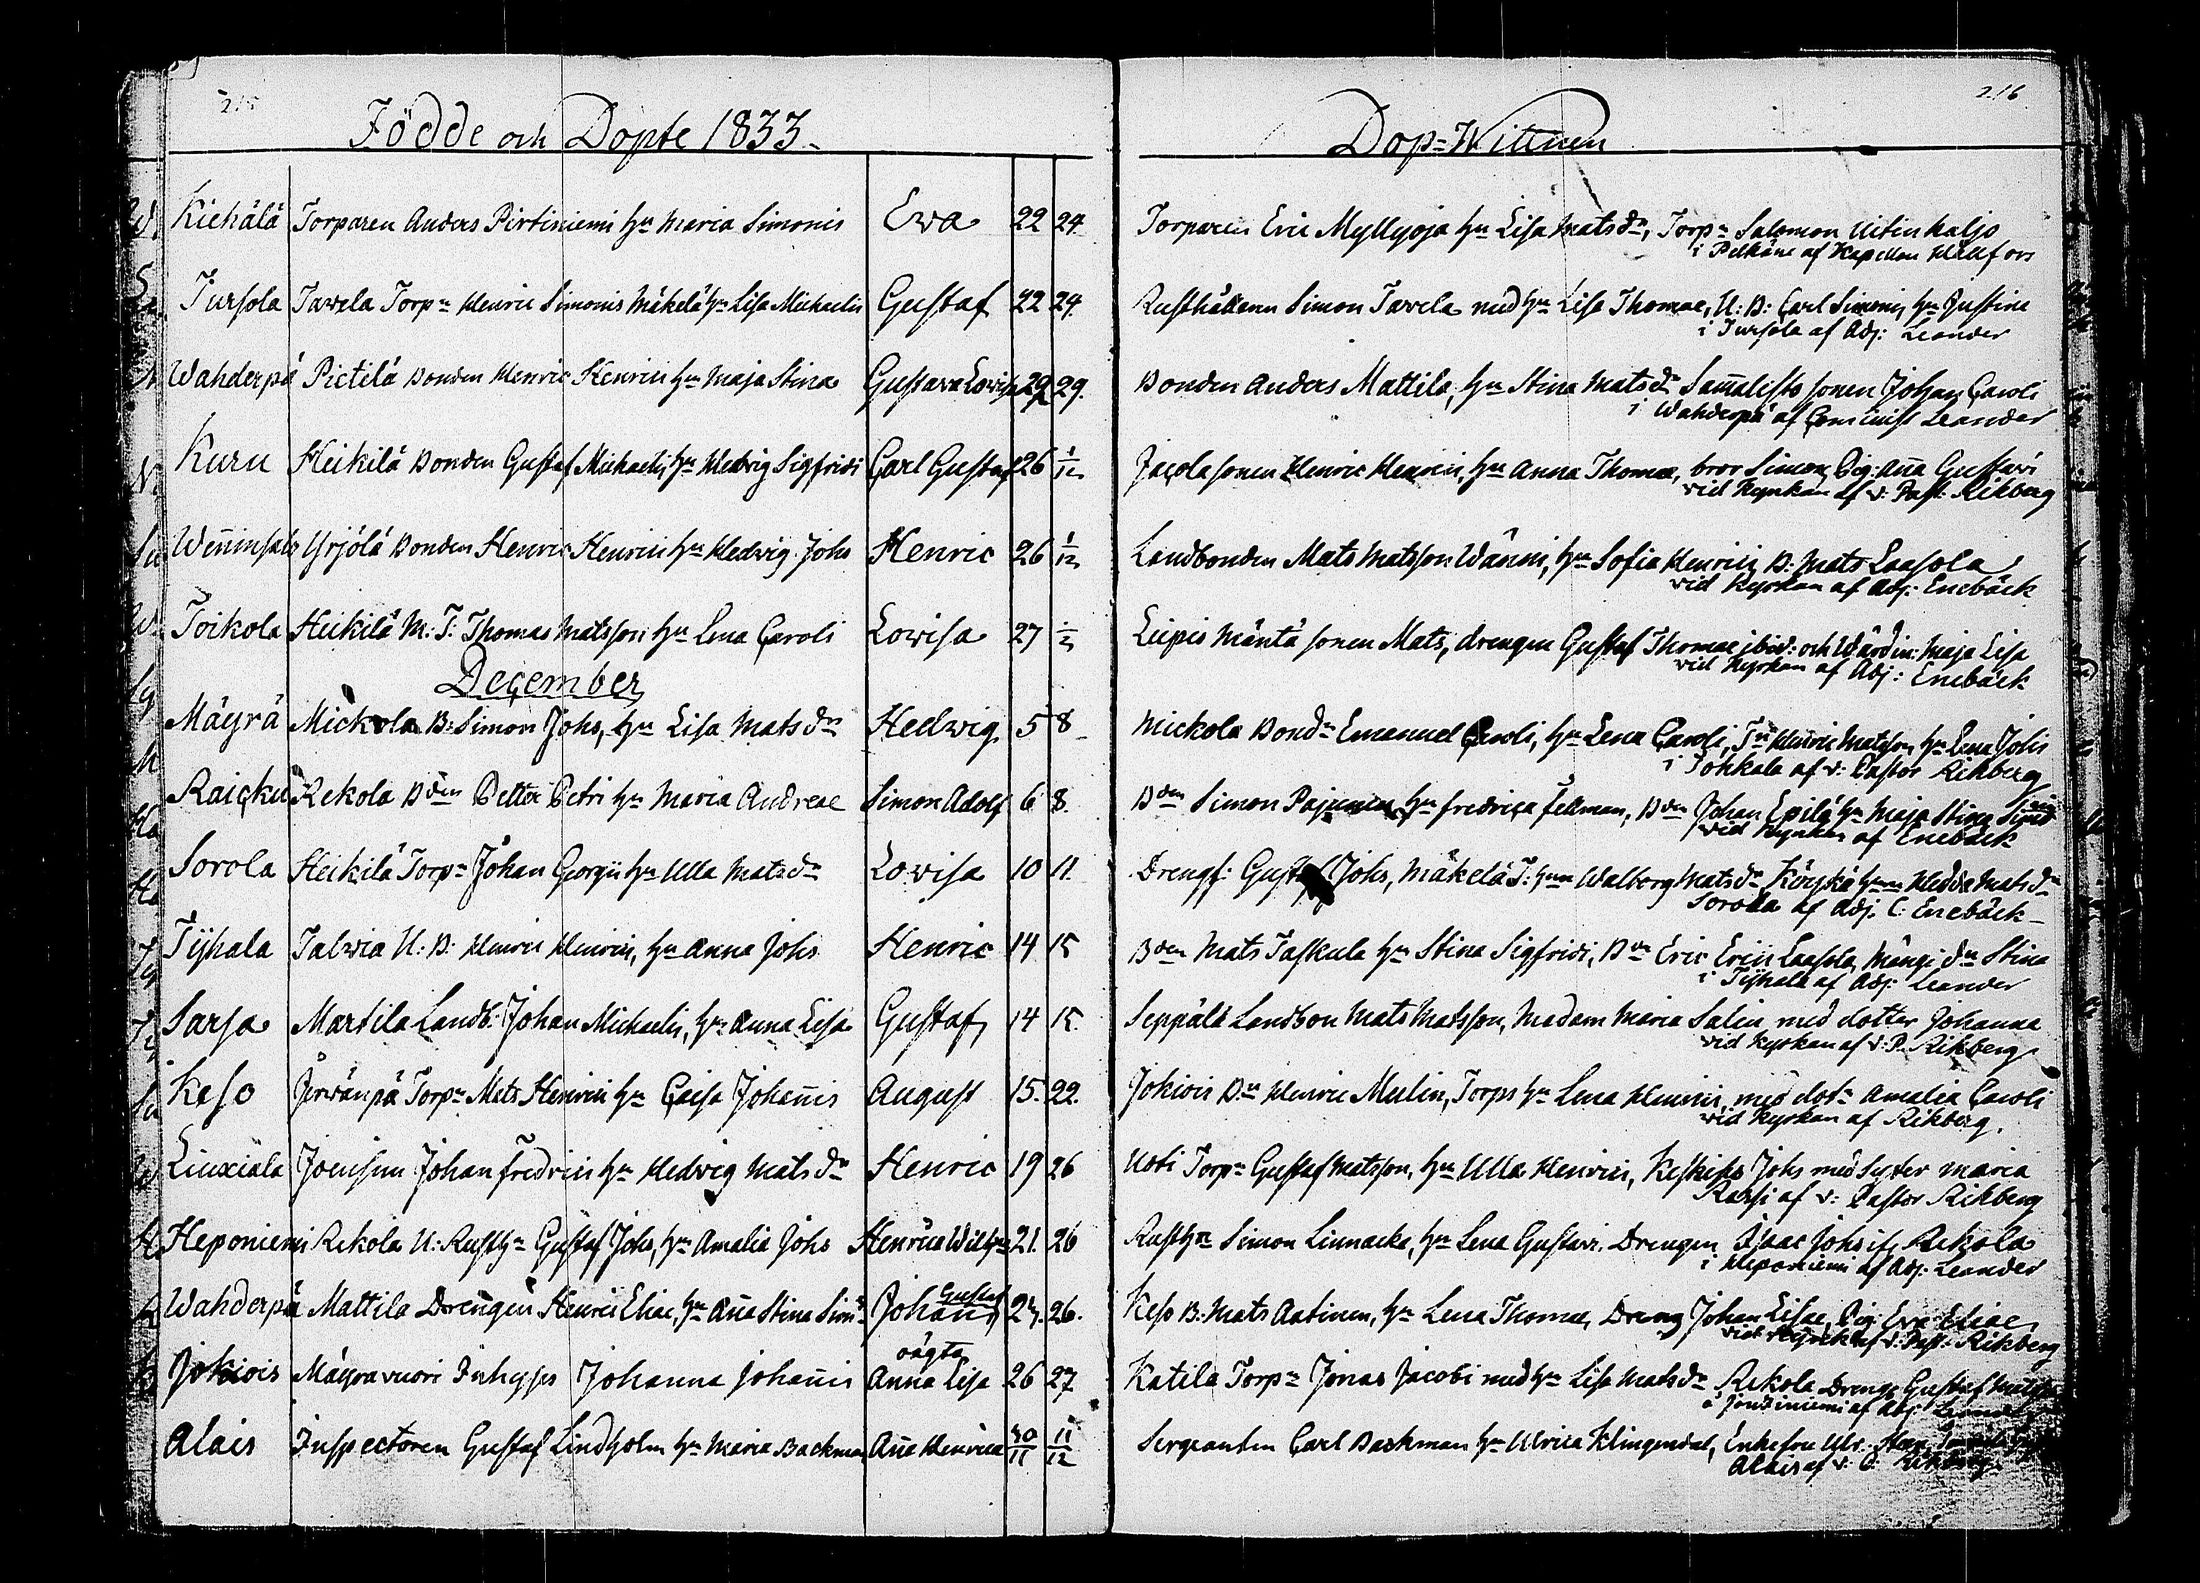 215
Födde och Dopte 1833
Kiehälä Torparen Anders Pirtiniemi hu Maria Simonis Ewa 22 24
Jursola Tawela Torpn Henric Simonis Mäkelä hu Lisa Michaelis Gustaf 22 24
Wahderpä Pietilä Bonden Henric Henrici hu Maja Stina Gustava Lovisa 29 29.
Kuru Heikilä Bonden Gustaf Michaelis hu Hedvig Sigfridi Carl Gustaf 26 1/12
Yrjölä Bonden Henric Henrici hu Hedwig Johs Henric 26 1/12
Toikola Heikilä M: T: Thomas Matsson hu Lena Caroli Lowisa 27
December
Mäyrä Mickola B: Simon Johs, hu Lisa Matsdr Hedwig 5 8
Raicku Rekola Bden Petter Petri hu Maria Andreae Simon Adolf 6 8
Sorola Heikilä Torpn Johan Georgii hu Ulla Matsdr Lovisa 10 11.
Tijhala Talwia U: B: Henric Henrici, hu Anna Johs Henric 14 15
Sarsa Martila Landb: Johan Michaelis, hu Anna Lisa Gustaf 14 15.
Keso Järwänpä Torpn Mats Henrici hu Caisa Johañis August 15. 22.
Liuxiala Joensun Johan Fredrici hu Hedwig Matsdr Henric 19 26
Heponiemi Rekola U: Rusthn Gustaf Johs, hu Amalia Johs 21. 26
Gustaf
Wahderpä Mattila Drengen Henric Eliae, hu Aña Stina Johañ 24. 26.
oägta
Jokiois Mäyravuori Inhyses Johanna Johañis Anna Lisa 26 27
Alais Inspectoren Gustaf Lindholm hu Maria Backman Aña Henrica 30/11 11/12
216
Dop=Wittnen
Torparen Eric Myllyoja hu Lisa Matsdr, Torpn Salomon
i Pelkäne af Kapellan
Rusthållaren Simon Tawela med hu Lisa Thomae, U: B: Carl Simonis, hu Justina
i Jursola af Adj: Leander
Bonden Anders Mattila, hu Stina Matsdr sonen Johan Caroli
i Wahderpä af Leander
Jacola sonen Henric Henrici, hu Anna Thomae, bror Simon, Pig: Aña Gustavi
vid Kyrkan af v: Past: Rikberg
Landbonden Mats Matsson Wänni, hu Sofia Henrici, B: Mats Laasola
vid Kyrkan af Adj: Enebäck
Leipis Mäntä sonen Mats, drengen Gustaf Thomae ibid: och Wärdin: Maja Lisa
vid Kyrkan af Adj: Enebäck
Mickola Bondn Emanuel Caroli, hu Lena Caroli, Henric Matsson hu Lena Johs
i Tohkala af v: Pastor Rikberg
Bden Simon Pajunen hu Fredrica Fellman, Bden Johan Epilä hu Maja Stina
vid Kyrkan af Enebäck
Drengs: Gustaf Johs, Mäkelä T: hun Walborg Matsdr Köyskä hun Hedda Matsdr
Sorola af Adj. C: Enebäck
Bden Mats Taskula hu Stina Sigfridi, Bdn Eric Erici Laasola, Mängi dr Stina
i Tijhala af Adj: Leander
Seppälä Landbon Mats Matsson, Madam Maria Salin med dotter Johanna
vid Kyrkan af v: P. Rikberg
Jokiois Bn Henric Mulin, Torps hu Lena Henrici, med dotr Amalia Caroli
vid Kyrkan af Rikberg.
Uoti Torpn Gustaf Matsson, hu Ulla Henrici, Johs med Syster Maria
af v: Pastor Rikberg
Rusthn Simon Linnacka, hu Lena Gustavi. Drengen Isaac Johs Rekola
i Heponiemi af Adj: Leander
Keso B: Mats Aatinen, hu Lena Thomae, Dreng Johan Eliae, Pig: Eva Eliae
vid Kyrkan af v: Past: Rikberg
Katila Torpn Jonas Jacobi med hu Lisa Matsdr Rekola Dreng: Gustaf
af Adj
Sergeanten Carl Backman hu Ulrica Klingendal, Enkefru
Alais af v: P: